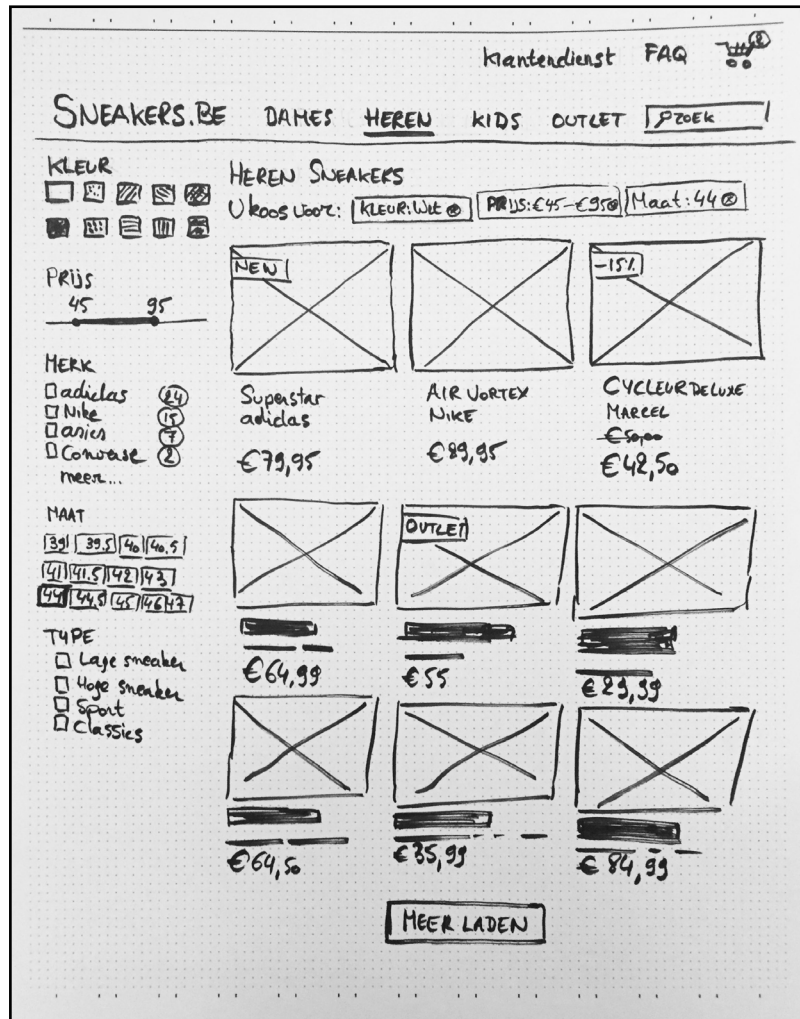 klantendienst FAQ
SNEAKERS.BE DAMES HEREN KIDS OUTLET ZOEK
KLEUR
Prijs
45 95
MERK
adidas 24
Nike 15
asics 7
Converse 2
meer...
MAAT
39 39.5 40 40.5
41 41.5 42 43
44 44.5 45 46 47
TYPE
Lage sneaker
Hoge sneaker
Sport
Classics
HEREN SNEAKERS
U koos voor: KLEUR: Wit PRIJS: €45-€95 Maat: 44
NEW
Superstar
adidas
€79,95
AIR VORTEX
NIKE
€89,95
-15%
CYCLEUR DE LUXE
MARCEL
€50,00
€42,50
€64,99
OUTLET
€55
€29,99
€64,50
€35,99
€84,99
MEER LADEN